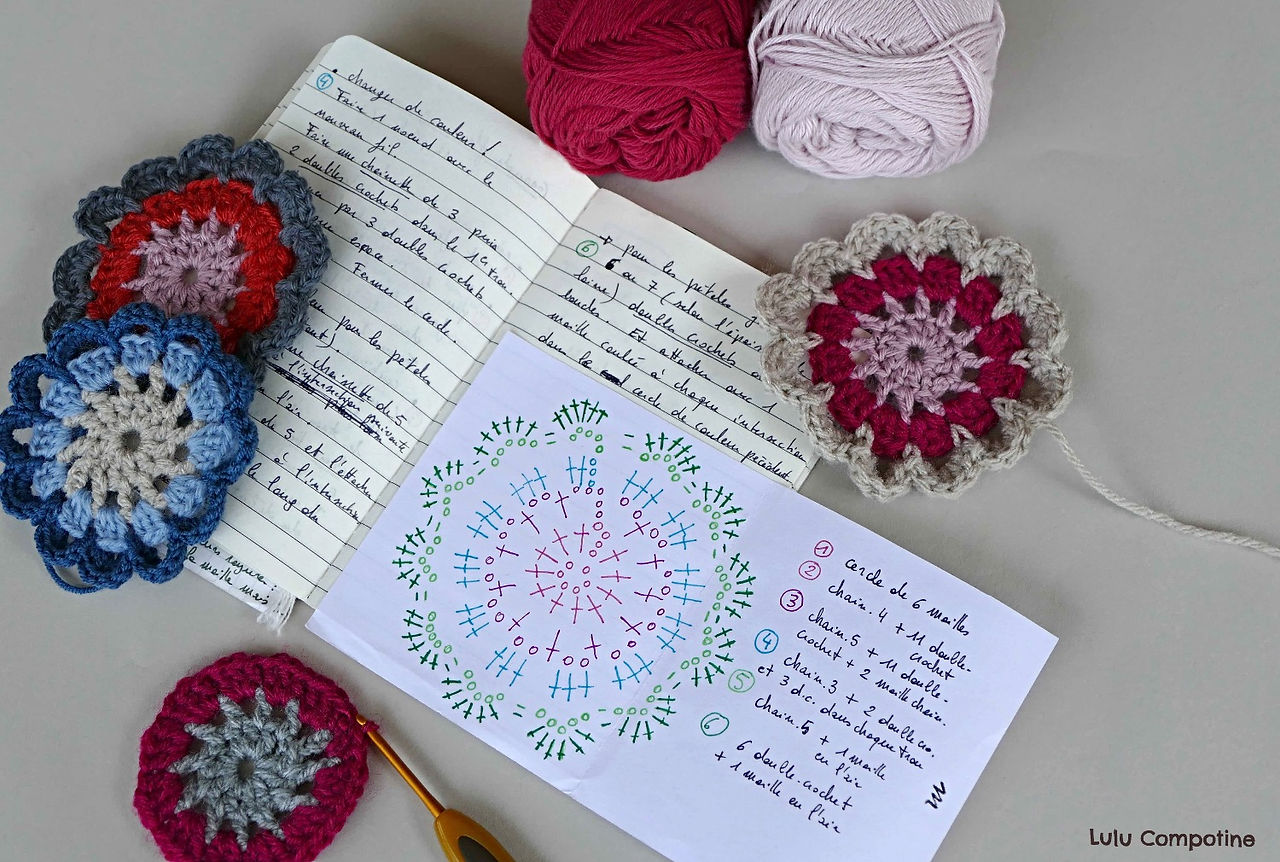 ④ • changer de couleur !
Faire 1 noeud avec le
nouveau fil.
Faire une chainette de 3 puis
2 doubles crochets dans le 1er trou
par 3 doubles crochets
espace.
Fermer le cercle.
pour les pétales
chainette de 5
l'intersection suivante
l'air.
de 5 et l'attacher
à l'intersection
long du
la maille
⑥ + pour les pétales,
6 ou 7 (selon
laine) doubles crochets
boucles. Et attacher avec 1
maille coulée à chaque intersection
dans le cercle de couleur précédent
① cercle de 6 mailles
② chain. 4 + 11 double-
crochet
③ chain. 5 + 11 double-
crochet + 2 maille chain.
④ chain. 3 + 2 double cro.
et 3 d.c. dans chaque trou
⑤ chain. 5 + 1 maille
en l'air
⑥ 6 double-crochet
+ 1 maille en l'air
Lulu Compotine